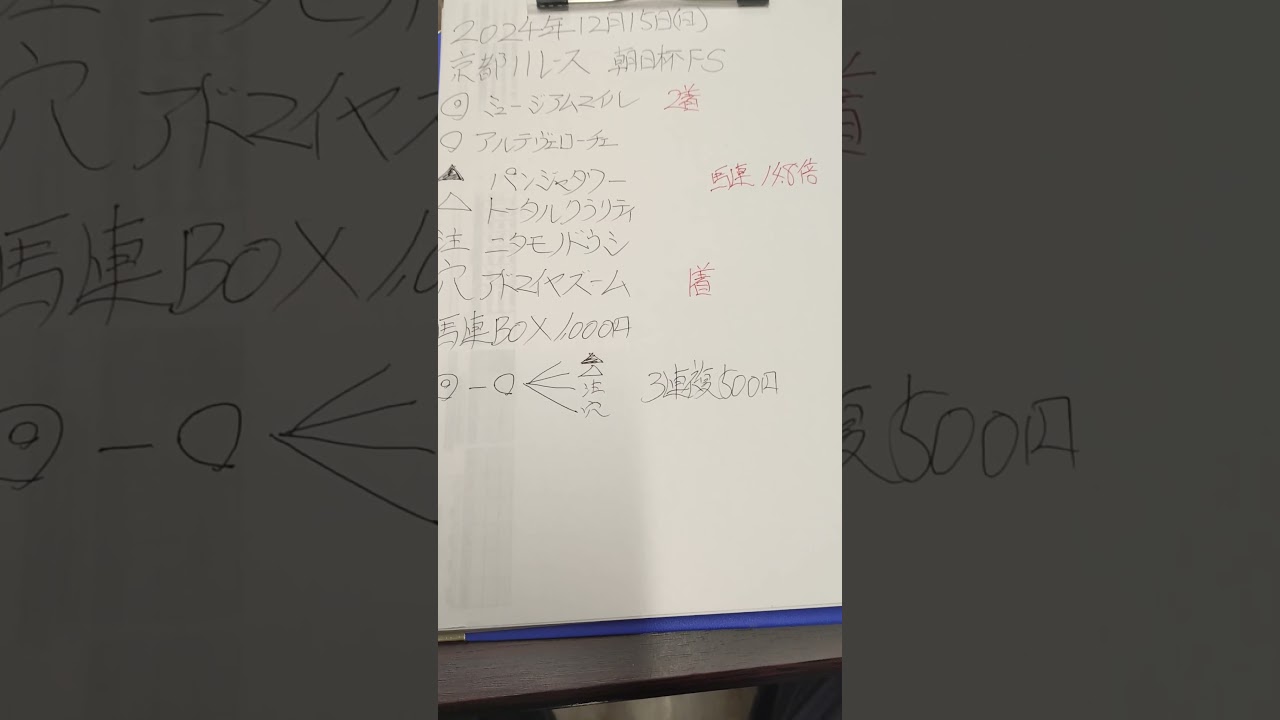 2024年12月15日(日)
京都11レース 朝日杯FS
◎ ミュージアムマイル 2着
○ アルテヴェローチェ
▲ パンジャタワー 馬連 14.8倍
△ トータルクラリティ
注 ニタモノドウシ
穴 アドマイヤズーム 1着
馬連BOX 1,000円
◎-○ ▲ 3連複500円
△
注
穴